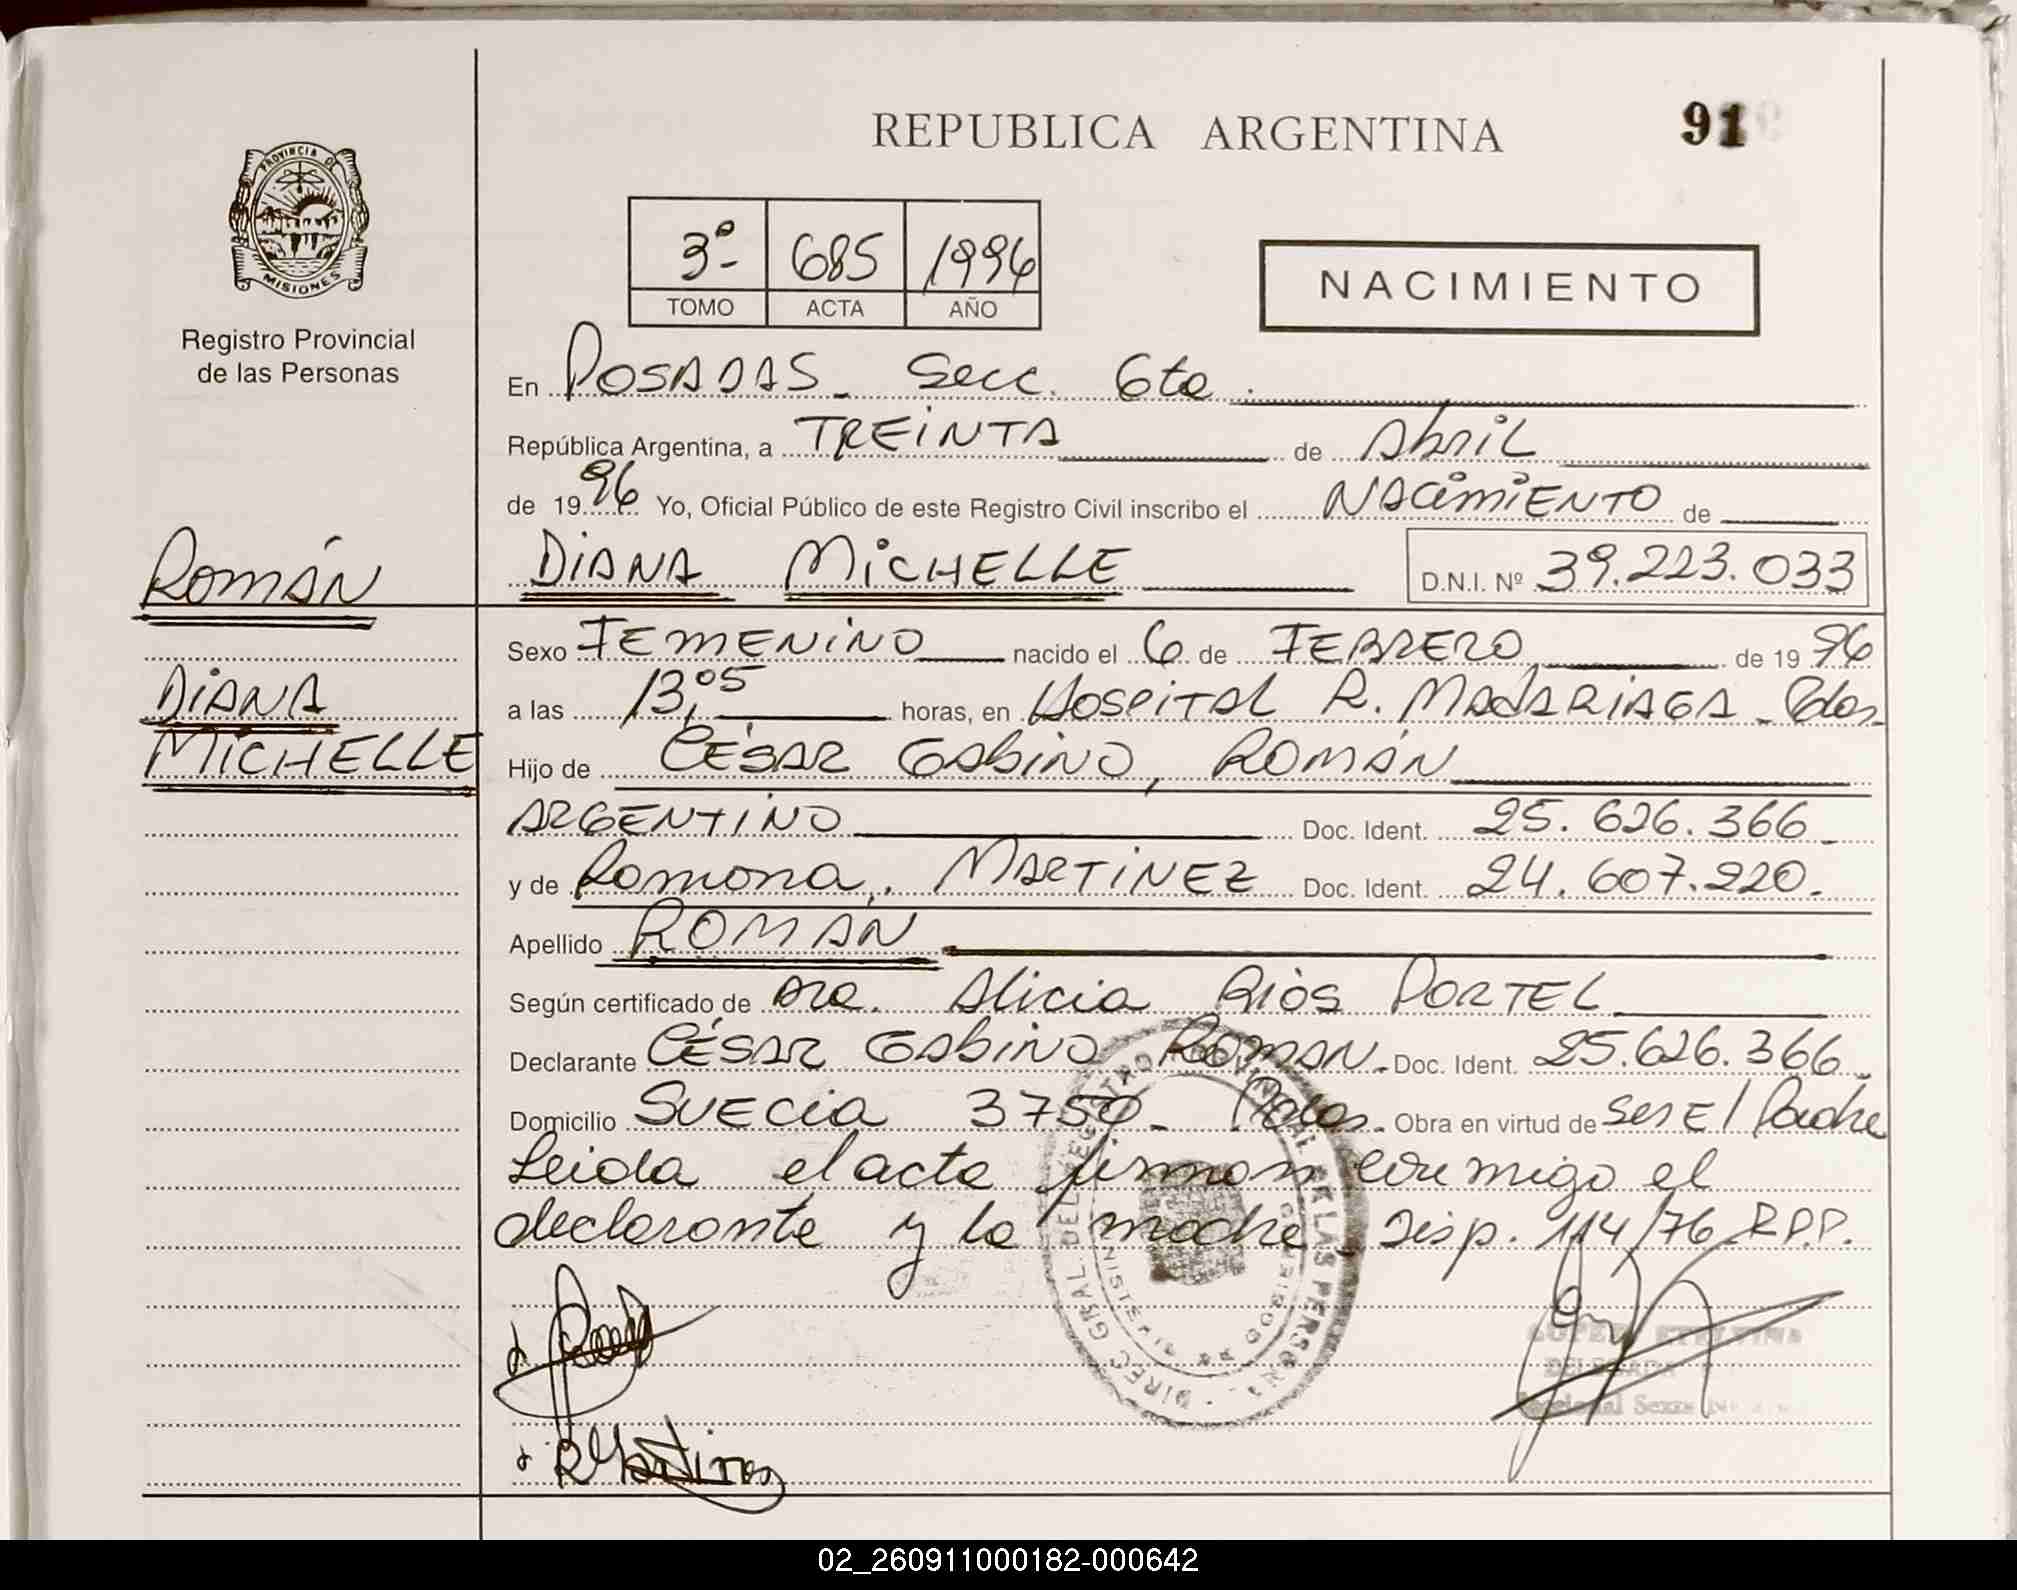 REPUBLICA ARGENTINA
91
PROVINCIA DE
MISIONES
Registro Provincial
de las Personas
3º- 685 1996
TOMO ACTA AÑO
NACIMIENTO
En POSADAS - Secc. 6ta.
República Argentina, a TREINTA de Abril
de 1996 Yo, Oficial Público de este Registro Civil inscribo el NACIMIENTO de
ROMÁN
DIANA MICHELLE D.N.I. Nº 39.223.033
Sexo FEMENINO nacido el 6 de FEBRERO de 1996
DIANA
a las 13,05 horas, en HOSPITAL R. MADARIAGA - Pdas.
MICHELLE
Hijo de CÉSAR GABINO, ROMÁN
ARGENTINO Doc. Ident. 25.626.366
y de Ramona, MARTINEZ Doc. Ident. 24.607.220.
Apellido ROMÁN
Según certificado de Dra. Alicia Ríos PORTEL
Declarante CÉSAR GABINO ROMAN. Doc. Ident. 25.626.366
Domicilio SUECIA 3750 - Pdas. Obra en virtud de ser El Padre
Leida el acta firman conmigo el
declarante y la madre - Disp. 114/76 R.P.P.
DIREC GRAL DEL REGISTRO PROVINCIAL DE LAS PERSONAS
R Martinez
DELEGADA
02_260911000182-000642